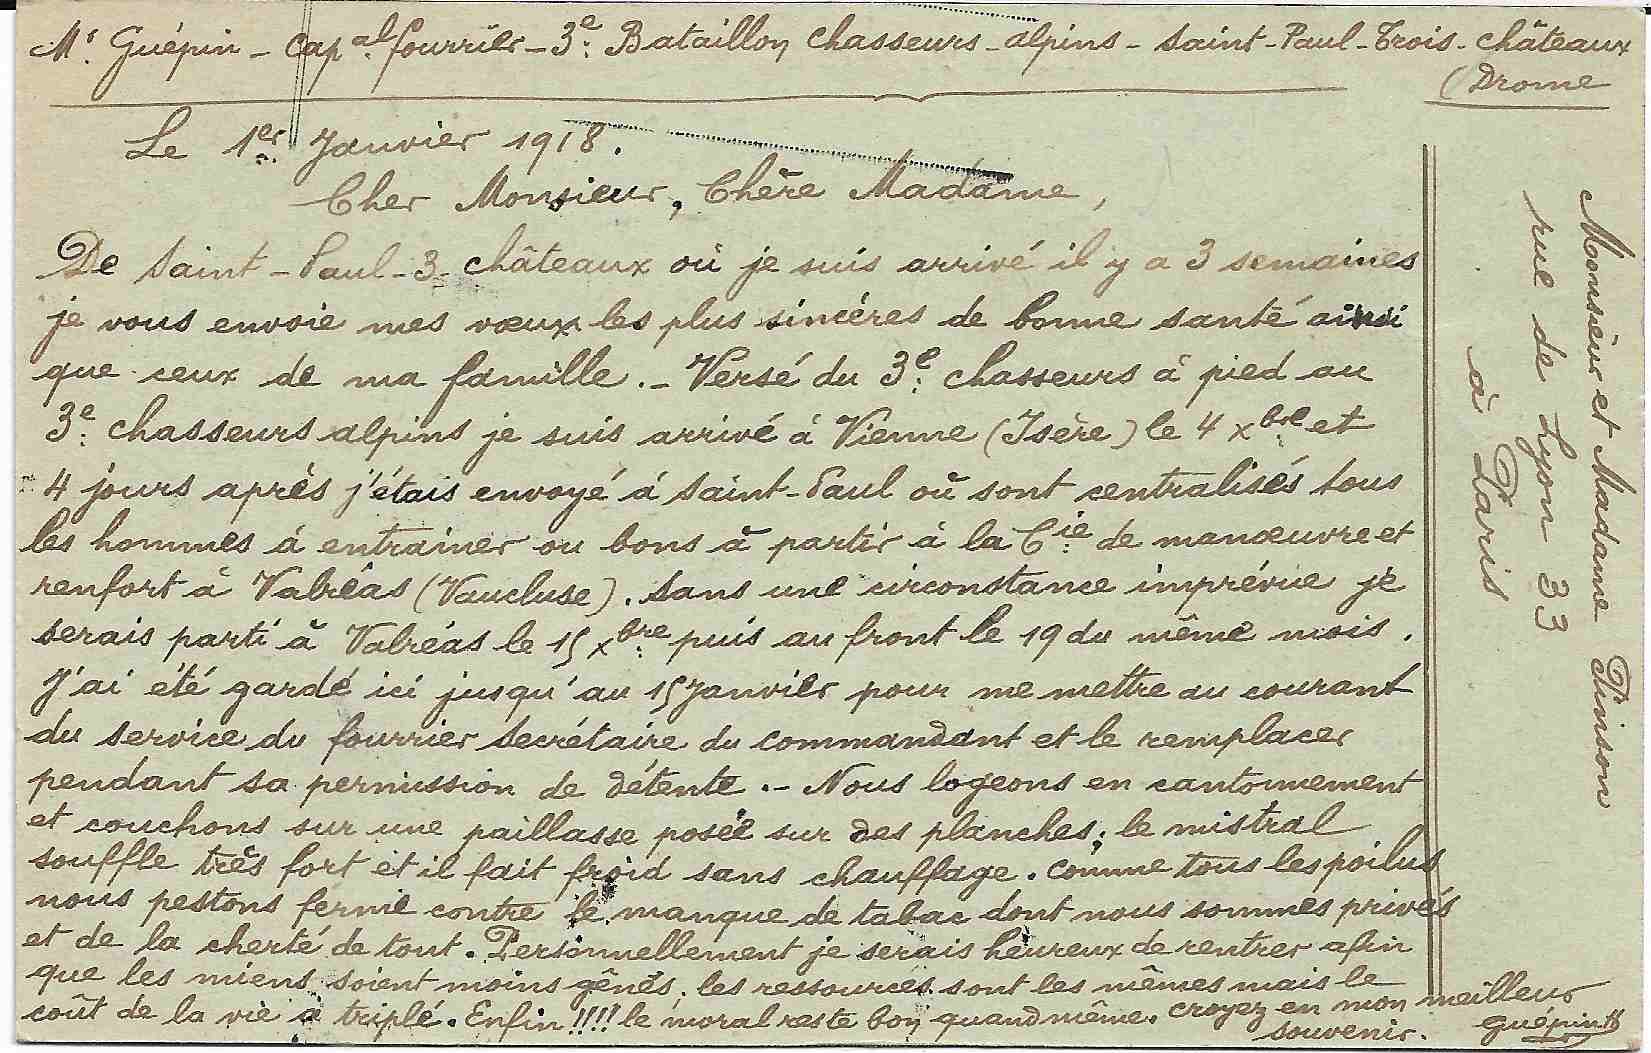 Mr. Guépin - Capal. fourrier - 3e. Bataillon Chasseurs - alpins - Saint-Paul-Trois-Châteaux
(Drome
Le 1er. Janvier 1918.
Cher Monsieur, Chère Madame,
De Saint-Paul-3-châteaux où je suis arrivé il y a 3 semaines
je vous envoie mes vœux les plus sincères de bonne santé ainsi
que ceux de ma famille. - Versé du 3e. chasseurs à pied au
3e. chasseurs alpins je suis arrivé à Vienne (Isère) le 4 xbre et
4 jours après j'étais envoyé à Saint-Paul où sont centralisés tous
les hommes à entrainer ou bons à partir à la Cie. de manœuvre et
renfort à Valréas (Vaucluse). Sans une circonstance imprévue je
serais parti à Valréas le 15 xbre. puis au front le 19 du même mois.
J'ai été gardé ici jusqu'au 15 Janvier pour me mettre au courant
du service du fourrier secrétaire du commandant et le remplacer
pendant sa permission de détente. - Nous logeons en cantonnement
et couchons sur une paillasse posée sur des planches; le mistral
souffle très fort et il fait froid sans chauffage. Comme tous les poilus
nous pestons ferme contre le manque de tabac dont nous sommes privés
et de la cherté de tout. Personnellement je serais heureux de rentrer afin
que les miens soient moins gênés, les ressources sont les mêmes mais le
coût de la vie a triplé. Enfin !!!! le moral reste bon quand même. Croyez en mon meilleur
souvenir. Guépin
Monsieur et Madame Prinson
rue de Lyon 33
à Paris